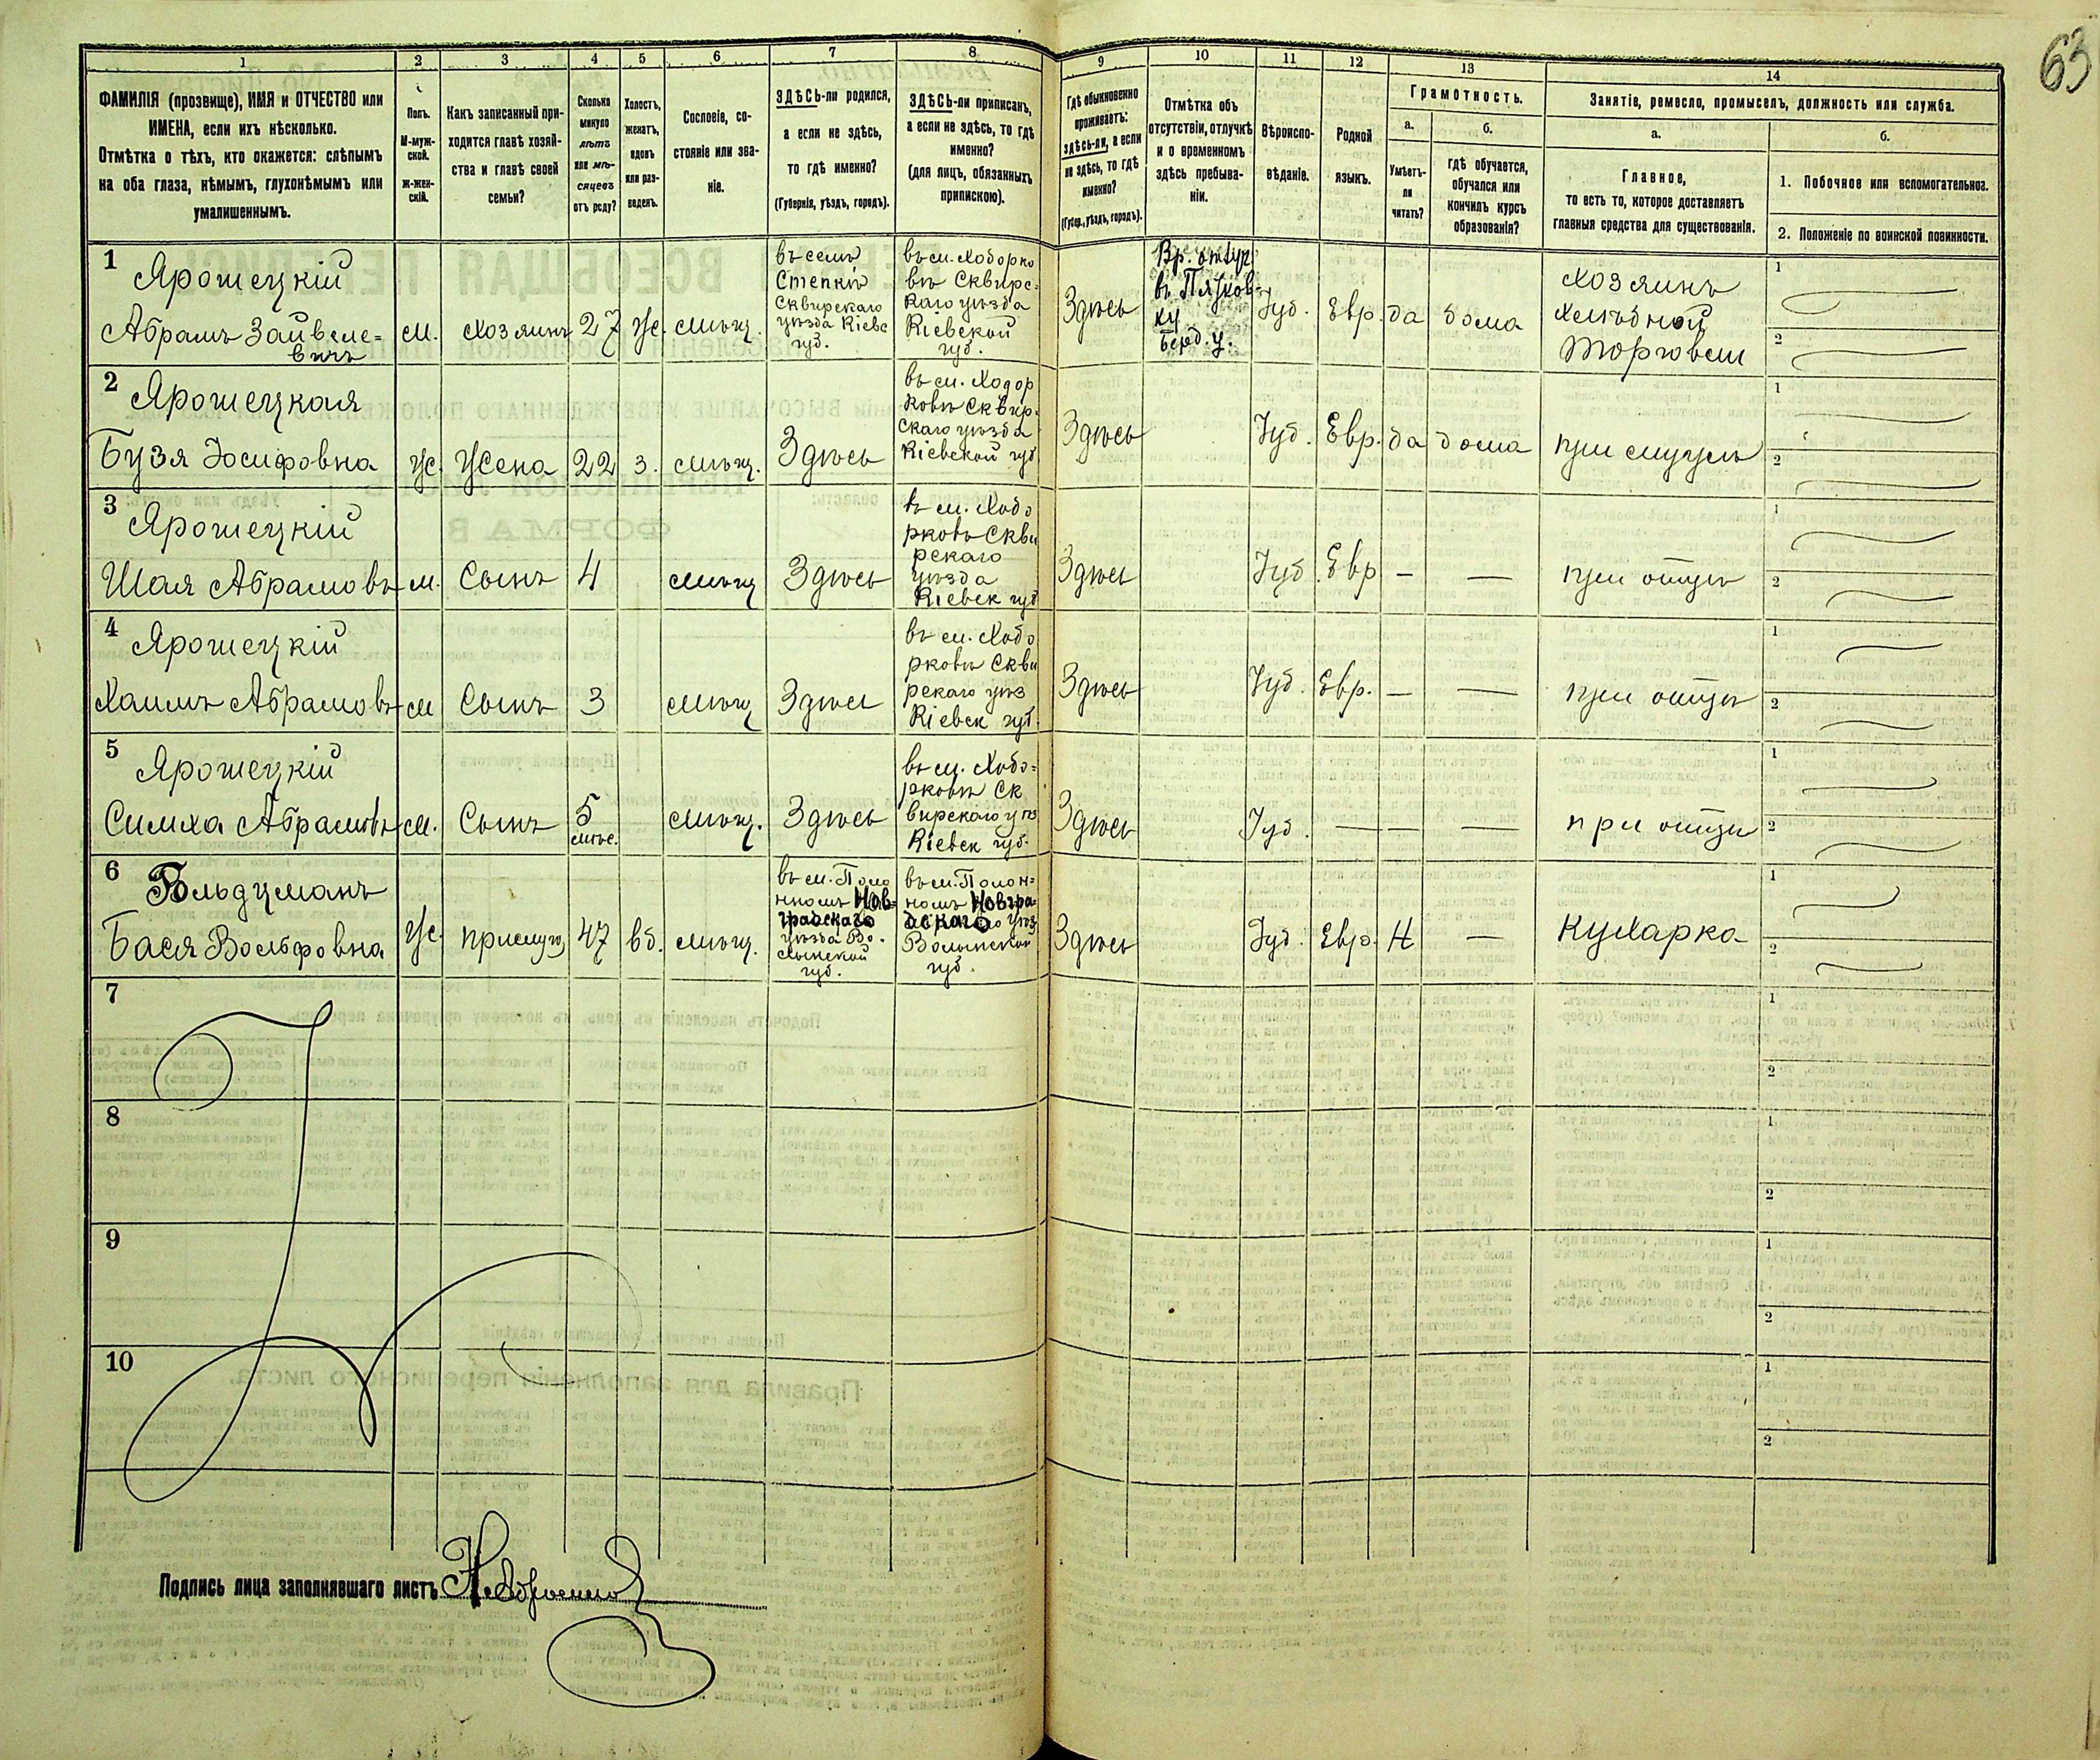 63
1
2
3
4
5
6
7
8
9
10
11
12
13
14
ФАМИЛІЯ (прозвище), ИМЯ и ОТЧЕСТВО или
ИМЕНА, если ихъ нѣсколько.
Отмѣтка о тѣхъ, кто окажется: слѣпымъ
на оба глаза, нѣмымъ, глухонѣмымъ или
умалишеннымъ.
Полъ.
М-муж-
ской.
Ж-жен-
скій.
Какъ записанный при-
ходится главѣ хозяй-
ства и главѣ своей
семьи?
Сколько
минуло
лѣтъ
или мѣ-
сяцевъ
отъ роду?
Холостъ,
женатъ,
вдовъ
или раз-
веденъ.
Сословіе, со-
стояніе или зва-
ніе.
ЗДѢСЬ-ли родился,
а если не здѣсь,
то гдѣ именно?
(Губернія, уѣздъ, городъ).
ЗДѢСЬ-ли приписанъ,
а если не здѣсь, то гдѣ
именно?
(для лицъ, обязанныхъ
припискою).
Гдѣ обыкновенно
проживаетъ:
здѣсь-ли, а если
не здѣсь, то гдѣ
именно?
(Губер., уѣздъ, городъ).
Отмѣтка объ
отсутствіи, отлучкѣ
и о временномъ
здѣсь пребыва-
ніи.
Вѣроиспо-
вѣданіе.
Родной
языкъ.
Грамотность.
а.
Умѣетъ-
ли
читать?
б.
гдѣ обучается,
обучался или
кончилъ курсъ
образованія?
Занятіе, ремесло, промыселъ, должность или служба.
а.
Главное,
то есть то, которое доставляетъ
главныя средства для существованія.
б.
1. Побочное или вспомогательное.
2. Положеніе по воинской повинности.
1
Ярошецкій
Абрамъ Зайвеле=
вичъ
м.
хозяинъ
27
ж.
мѣщ.
въ селѣ
Степкѣ
Сквирскаго
уѣзда Кіевс
губ.
въ м. Ходорко
вѣ Сквирс-
каго уѣзда
Кіевской
губ.
Здѣсь
Вр.
въ
ку
Берд. у.
Іуд.
Евр.
да
дома
Хозяинъ
хлѣбной
торговли
1
2
2
Ярошецкая
Бузя Іосифовна
ж.
Жена
22
з.
мѣщ.
Здѣсь
въ м. Ходор
ковѣ Сквир-
скаго уѣзда
Кіевской губ
Здѣсь
Іуд.
Евр.
да
дома
при мужѣ
1
2
3
Ярошецкій
Шая Абрамовъ
м.
Сынъ
4
мѣщ
Здѣсь
въ м. Ходо
рковѣ Скви
рскаго
уѣзда
Кіевск губ
Здѣсь
Іуд.
Евр
—
—
при отцѣ
1
2
4
Ярошецкій
Хаимъ Абрамовъ
м
Сынъ
3
мѣщ
Здѣсь
въ м. Ходо
рковѣ Скви
рскаго уѣз
Кіевск губ.
Здѣсь
Іуд.
Евр.
—
—
при отцѣ
1
2
5
Ярошецкій
Симха Абрамовъ
м.
Сынъ
5
мѣс.
мѣщ.
Здѣсь
въ м. Ходо=
рковѣ Ск
вирскаго уѣз
Кіевск губ.
Здѣсь
Іуд.
—
—
—
при отцѣ
1
2
6
Вольдманъ
Бася Вольфовна
ж.
прислуг
47
вд.
мѣщ.
въ м. Поло
нномъ Нов-
градскаго
уѣзда Во-
лынской
губ.
въ м. Полон=
номъ Новгра-
дскаго уѣз
Волынской
губ.
Здѣсь
Іуд.
Евр.
Н
—
Кухарка
1
2
7
1
2
8
1
2
9
1
2
10
1
2
Подпись лица заполнявшаго листъ